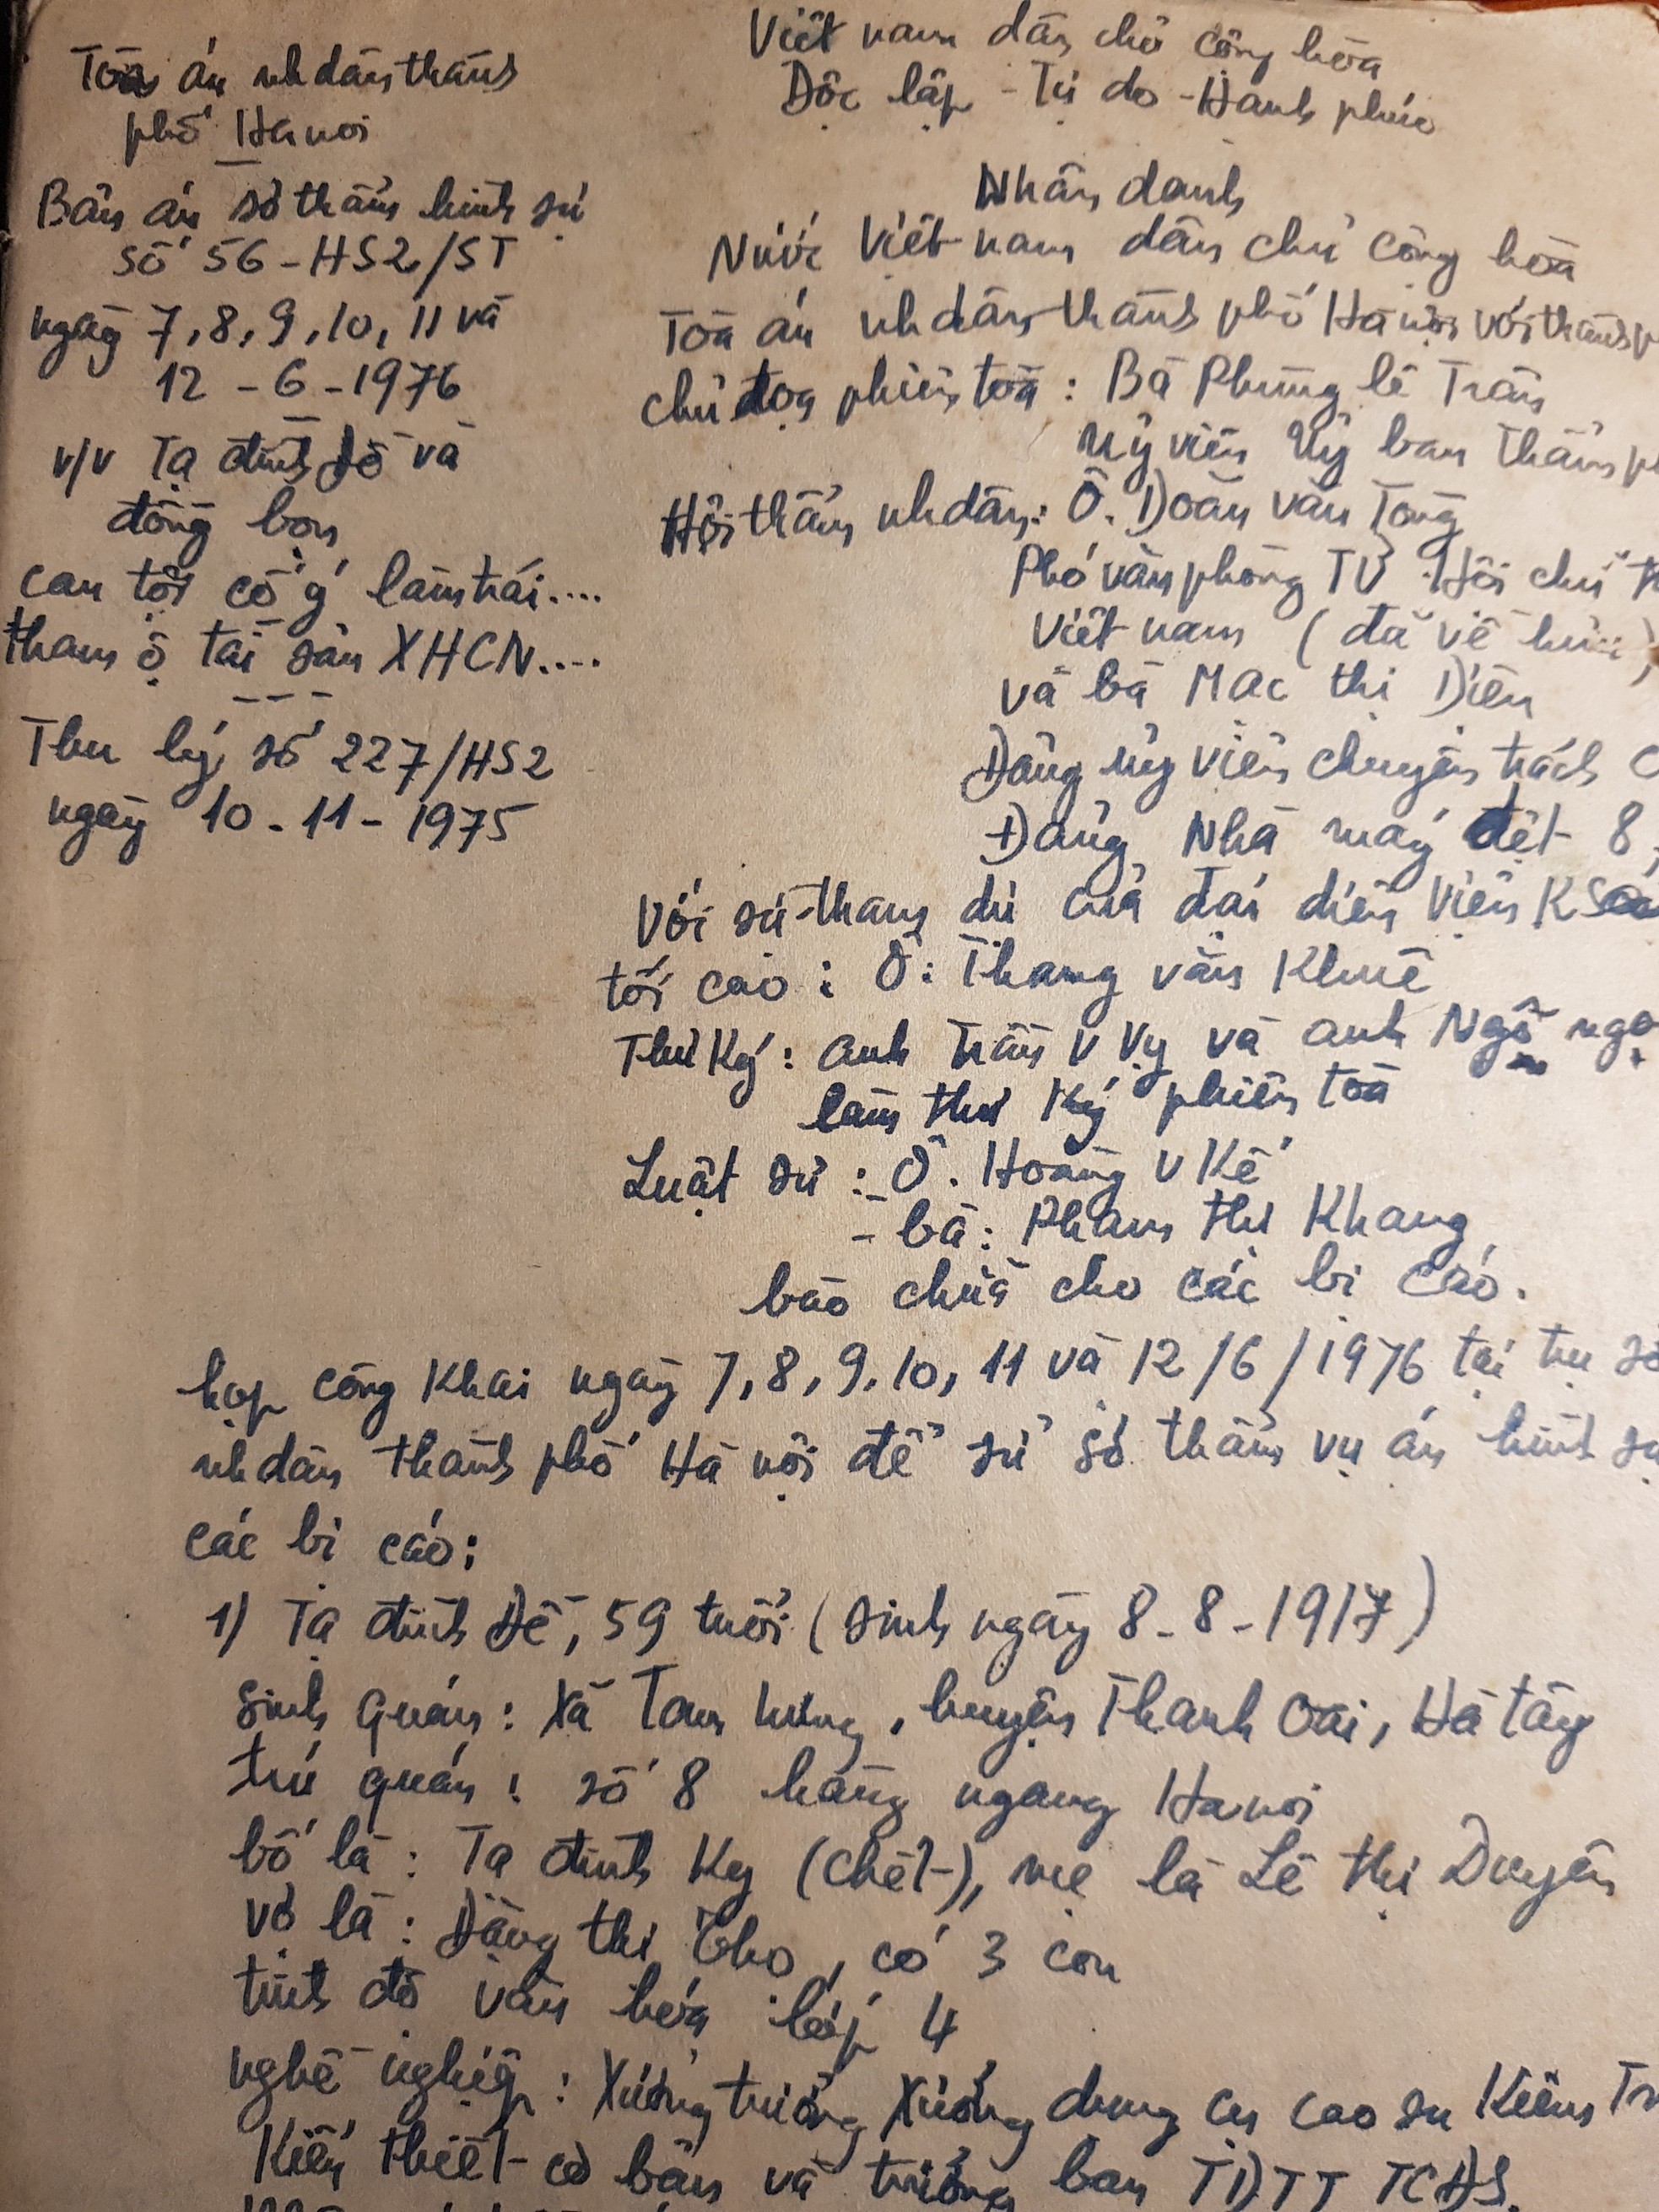 Toà án nhdân thành
phố Hà nội
Bản án sơ thẩm hình sự
số 56-HS2/ST
ngày 7, 8, 9, 10, 11 và
12-6-1976
v/v Tạ đình Đề và
đồng bọn
can tội cố ý làm trái....
tham ô tài sản XHCN....
Thụ lý số 227/HS2
ngày 10-11-1975
Việt nam dân chủ cộng hòa
Độc lập - Tự do - Hạnh phúc
Nhân danh
Nước Việt nam dân chủ cộng hòa
Toà án nhdân thành phố Hà nội với thành
chủ tọa phiên toà: Bà Phùng lê Trân
uỷ viên Uỷ ban thẩm
Hội thẩm nhdân: Ô. Đoàn văn Tòng
Phó văn phòng TƯ Hội chữ
Việt nam (đã về hưu)
và bà Mac thị Diên
Đảng uỷ viên chuyên trách
Đảng Nhà máy dệt 8
Với sự tham dự của đại diện Viện KS
tối cao: Ô: Thang văn Khuê
Thư ký: anh Trần V Vy và anh Ngô
làm thư ký phiên toà
Luật sư: - Ô. Hoàng V Kế
- bà: Phạm thị Khang
bào chữa cho các bị cáo.
họp công khai ngày 7, 8, 9, 10, 11 và 12/6/1976 tại trụ sở
nhdân thành phố Hà nội để xử sơ thẩm vụ án hình sự
các bị cáo:
1) Tạ đình Đề, 59 tuổi (sinh ngày 8-8-1917)
sinh quán: Xã Tam hưng, huyện Thanh Oai, Hà tây
trú quán: số 8 hàng ngang Hà nội
bố là: Tạ đình Ky (chết), mẹ là Lê thị Duyên
vợ là: Đặng thị Thọ, có 3 con
trình độ văn hóa lớp 4
nghề nghiệp: Xưởng trưởng Xưởng dụng cụ cao su Kiêm
Kiến thiết cơ bản và trưởng ban TDTT TCĐS.